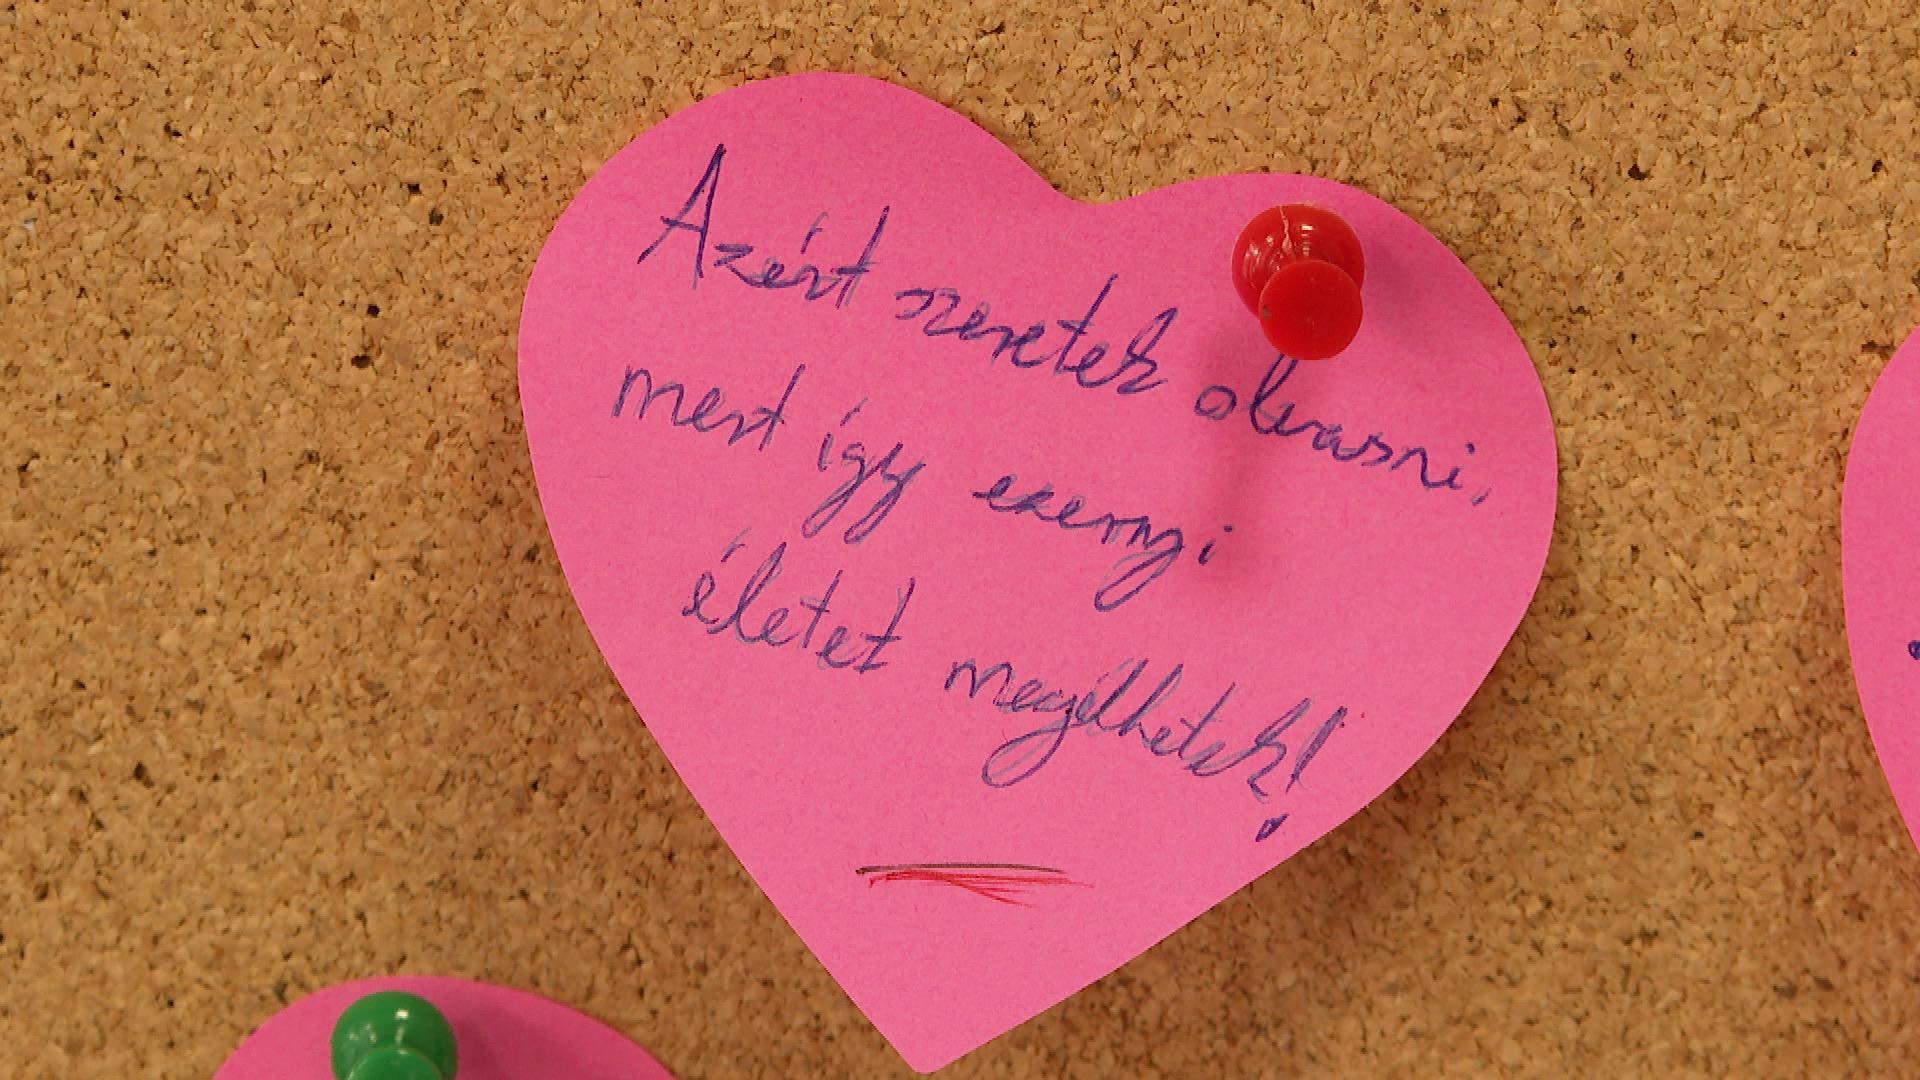 Azért szeretek olvasni,
mert így ezernyi
életet megélhetek!